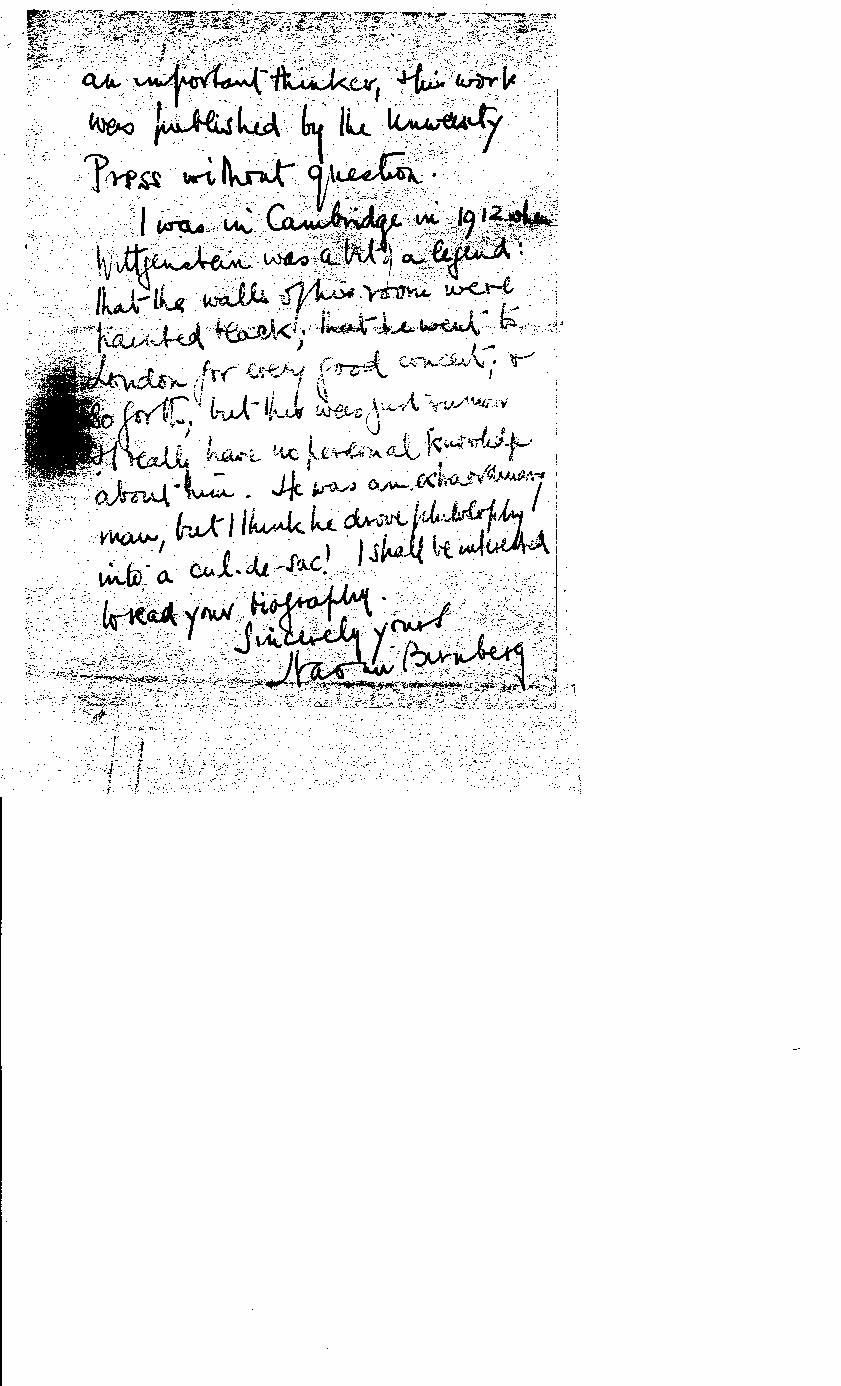 an important thinker, this work
was published by the University
Press without question.
I was in Cambridge in 1912 when
Wittgenstein was a bit of a legend:
that the walls of his room were
painted black; that he went to
London for every good concert; &
so forth; but this was just rumour
I really have no personal knowledge
about him. He was an extraordinary
man, but I think he drove philosophy
into a cul-de-sac! I shall be interested
to read your biography.
Sincerely yours
Naomi Birnberg